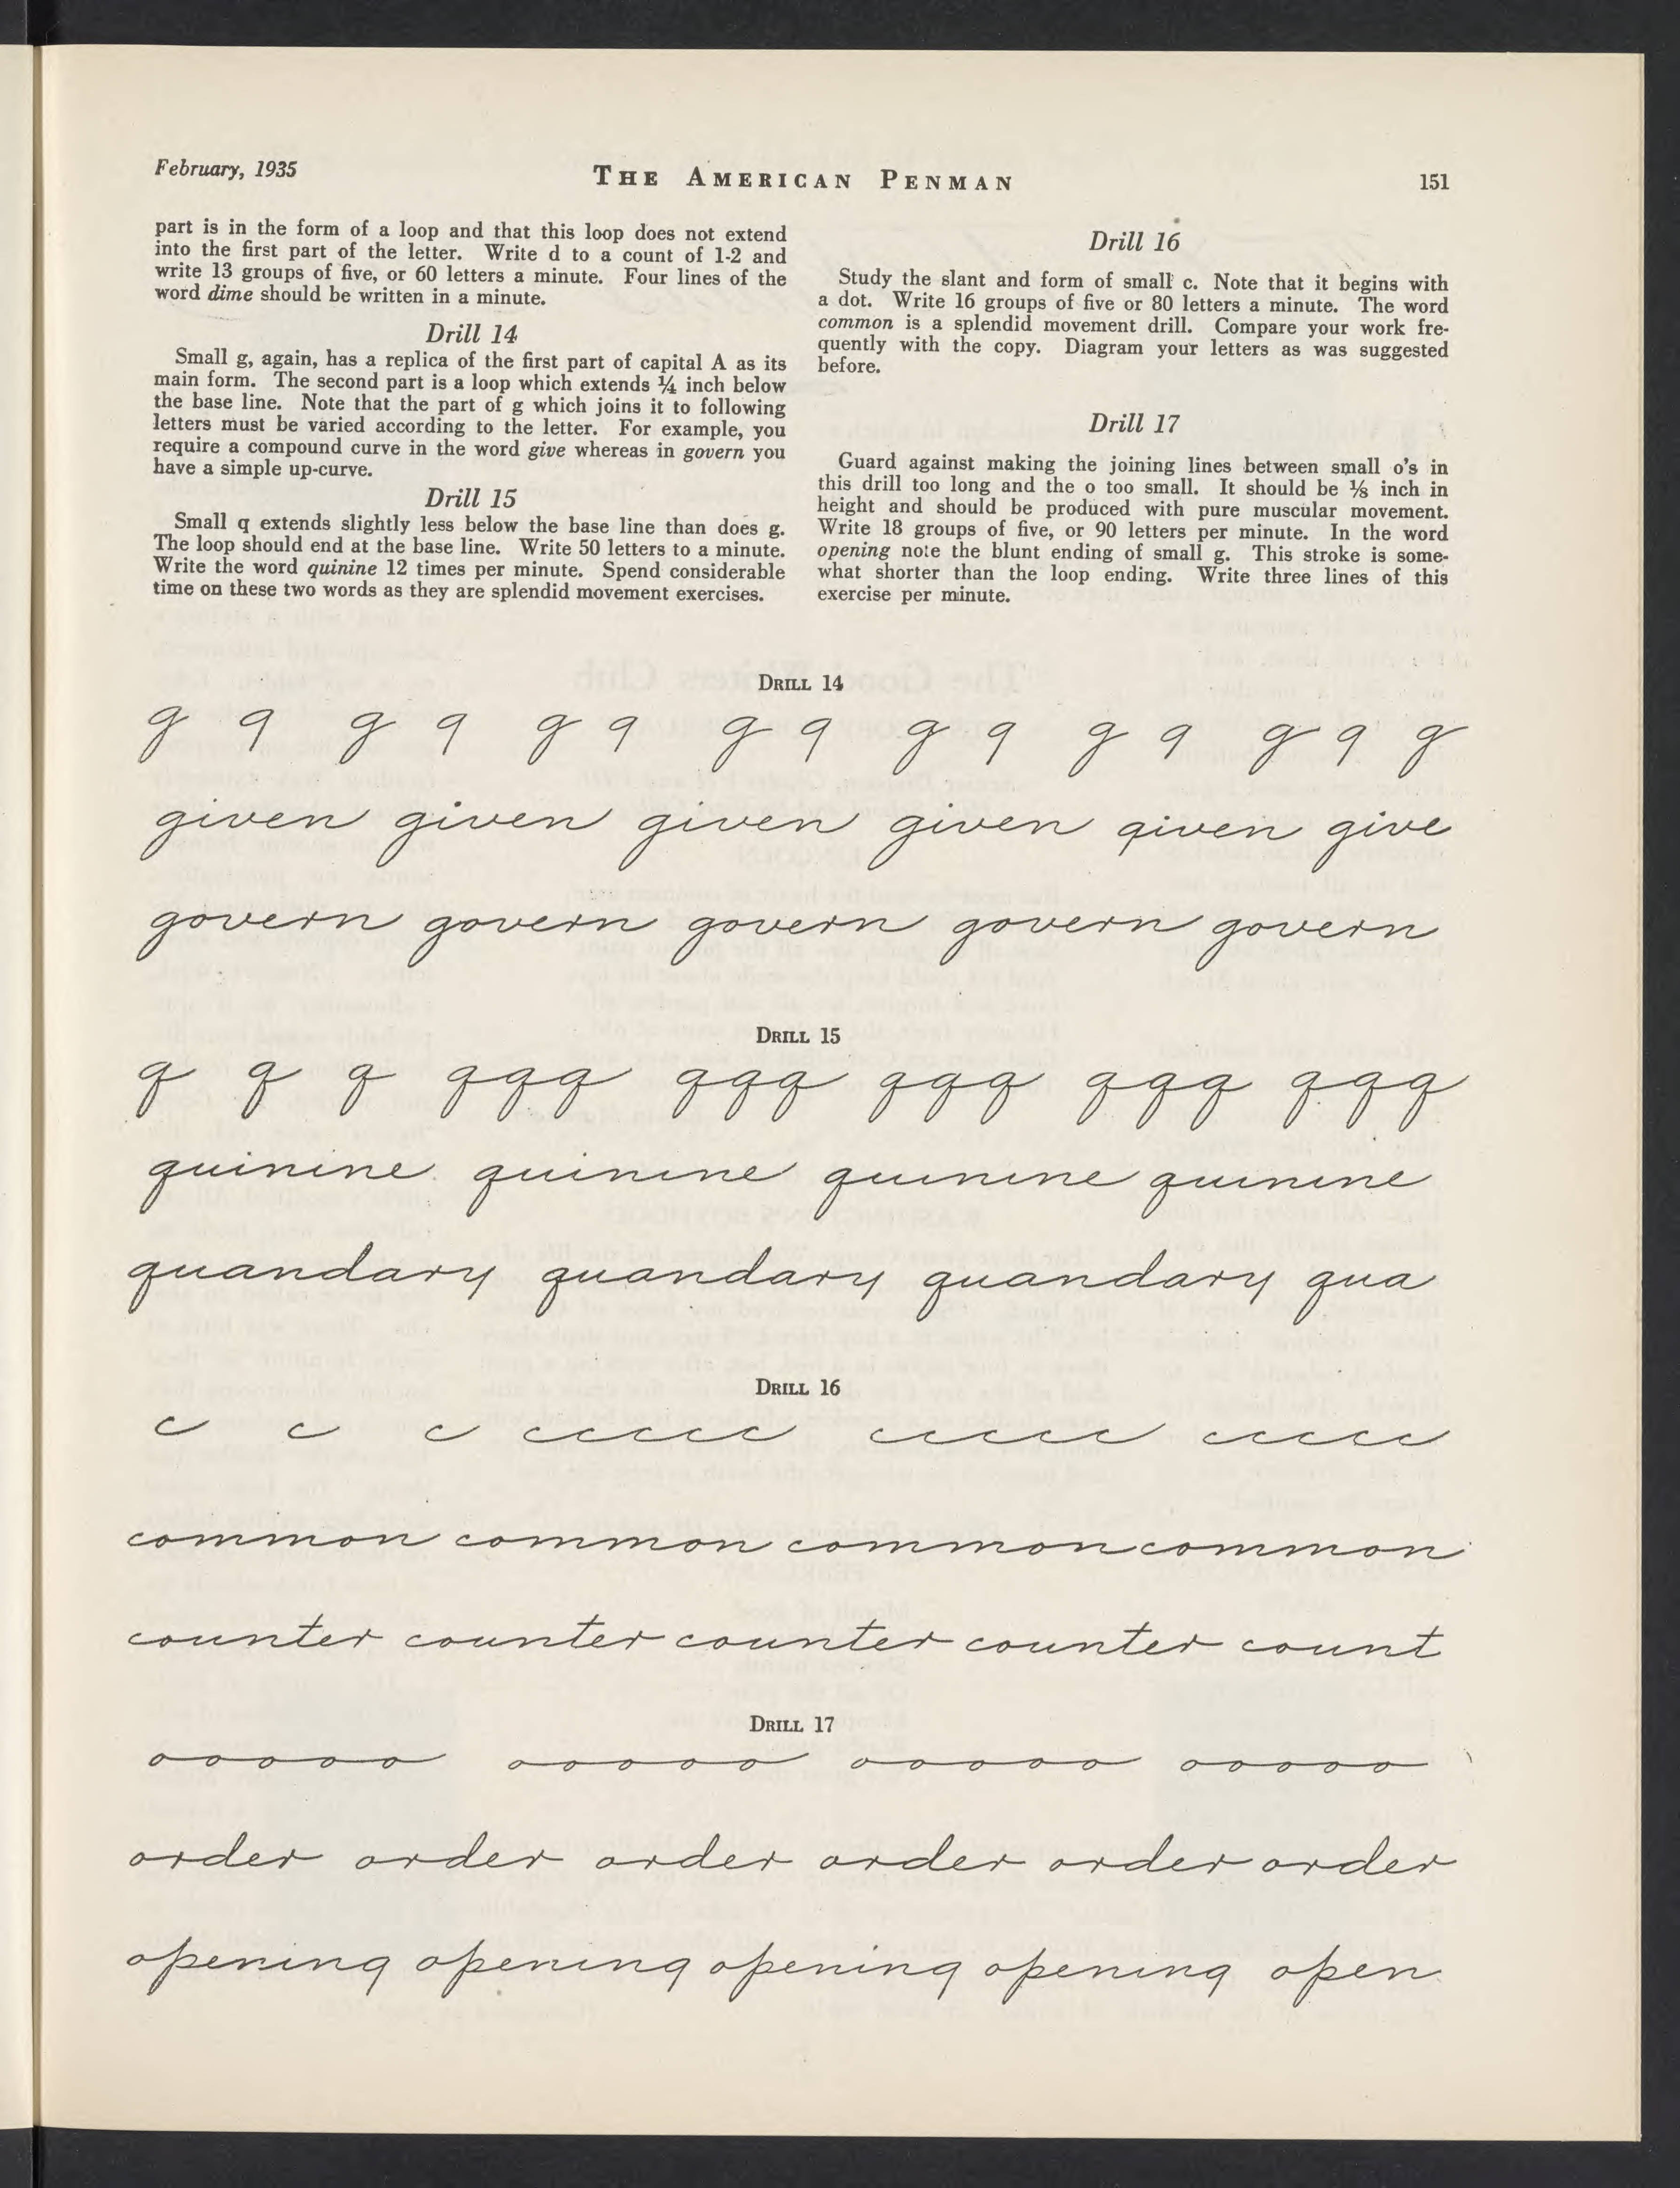 February, 1935
THE AMERICAN PENMAN
151
part is in the form of a loop and that this loop does not extend
into the first part of the letter. Write d to a count of 1-2 and
write 13 groups of five, or 60 letters a minute. Four lines of the
word dime should be written in a minute.
Drill 14
Small g, again, has a replica of the first part of capital A as its
main form. The second part is a loop which extends ¼ inch below
the base line. Note that the part of g which joins it to following
letters must be varied according to the letter. For example, you
require a compound curve in the word give whereas in govern you
have a simple up-curve.
Drill 15
Small q extends slightly less below the base line than does g.
The loop should end at the base line. Write 50 letters to a minute.
Write the word quinine 12 times per minute. Spend considerable
time on these two words as they are splendid movement exercises.
Drill 16
Study the slant and form of small c. Note that it begins with
a dot. Write 16 groups of five or 80 letters a minute. The word
common is a splendid movement drill. Compare your work fre-
quently with the copy. Diagram your letters as was suggested
before.
Drill 17
Guard against making the joining lines between small o's in
this drill too long and the o too small. It should be ⅛ inch in
height and should be produced with pure muscular movement.
Write 18 groups of five, or 90 letters per minute. In the word
opening note the blunt ending of small g. This stroke is some-
what shorter than the loop ending. Write three lines of this
exercise per minute.
DRILL 14
g g g g g g g g g g g g g g g
given given given given given give
govern govern govern govern govern
DRILL 15
q q q qqq qqq qqq qqq qqq
quinine quinine quinine quinine
quandary quandary quandary qua
DRILL 16
c c c ccccc ccccc ccccc
common common common common
counter counter counter counter count
DRILL 17
ooooo ooooo ooooo ooooo
order order order order order order
opening opening opening opening open